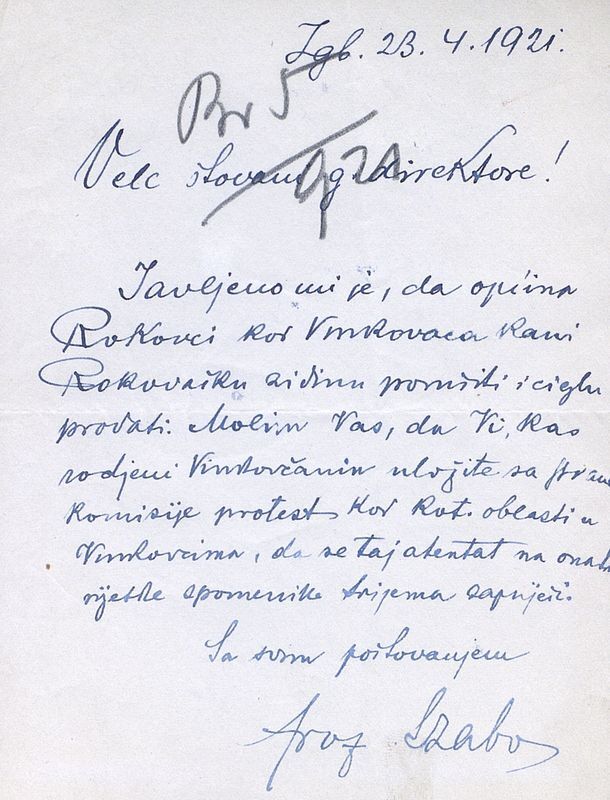 Zgb. 23. 4. 1921.
Br 5
921
Vele štovani g. direktore!
Javljeno mi je, da općina
Rokovci kod Vinkovaca kani
Rokovačku zidinu porušiti i ciglu
prodati. Molim Vas, da Vi, kao
rodjeni Vinkovčanin uložite sa strane
komisije protest kod kot. oblasti u
Vinkovcima, da se taj atentat na onako
rijetke spomenike Srijema zapriječi.
Sa svim poštovanjem
Szabo